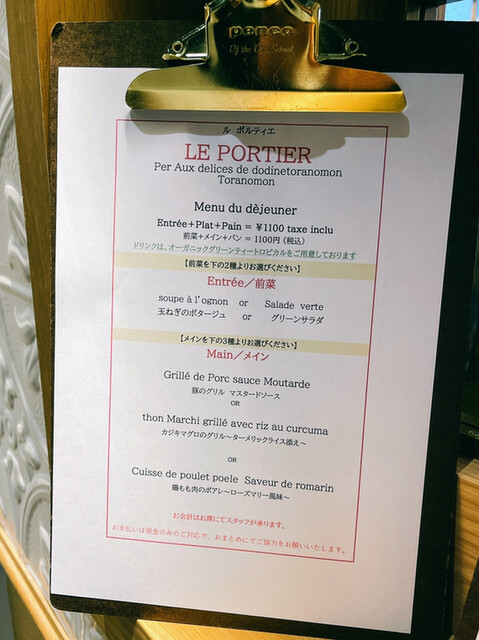 penco
ル ポルティエ
LE PORTIER
Per Aux delices de dodinetoranomon
Toranomon
Menu du dèjeuner
Entrée+Plat+Pain = ¥1100 taxe inclu
前菜+メイン+パン = 1100円 (税込)
ドリンクは、オーガニックグリーンティートロピカルをご用意しております
【前菜を下の2種よりお選びください】
Entrée/前菜
soupe à l'ognon or Salade verte
玉ねぎのポタージュ or グリーンサラダ
【メインを下の3種よりお選びください】
Main/メイン
Grillé de Porc sauce Moutarde
豚のグリル マスタードソース
OR
thon Marchi grillé avec riz au curcuma
カジキマグロのグリル~ターメリックライス添え~
OR
Cuisse de poulet poele Saveur de romarin
鶏もも肉のポアレ~ローズマリー風味~
お会計はお席にてスタッフが承ります。
お支払いは現金のみのご対応で、おまとめにてご協力をお願いいたします。